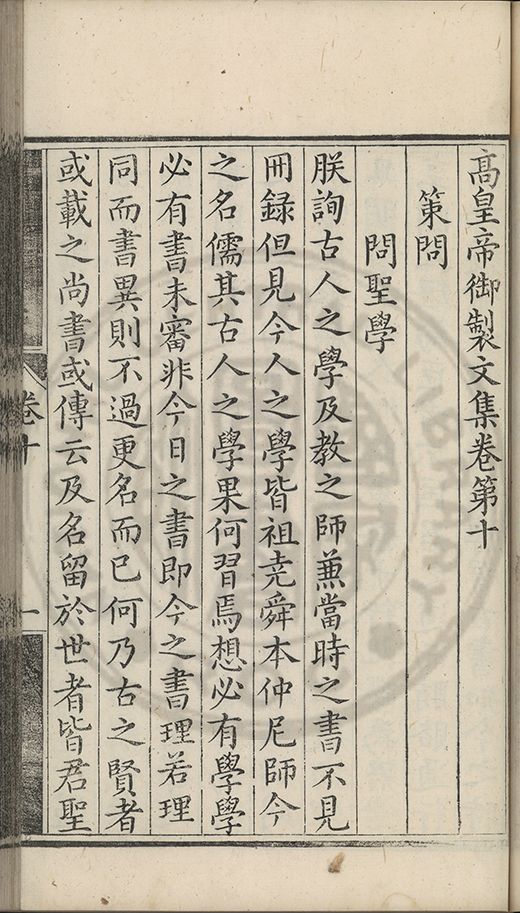 高皇帝御製文集卷第十
策問
問聖學
朕詢古人之學及教之師蒹當時之書不見
冊錄但見今人之學皆祖尭舜本仲尼師今
之名儒其古人之學果何習焉想必有學學
必有書未審非今日之書即今之書理若理
同而書異則不過更名而已何乃古之賢者
或載之尚書或傳云及名留於世者皆君聖
卷十
一